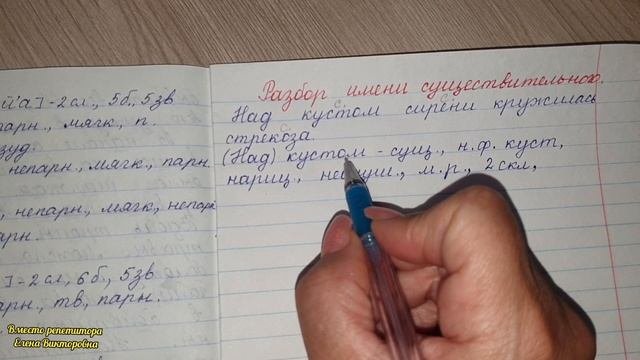 й'а]-2сл., 5б., 5зв
парн., мягк., п.
непарн., мягк., парн.
, непарн., мягк., непарн
арн.
]-2сл, 6б., 5зв
арн., тв., парн.
Разбор имени существительного.
Над кустом сирени кружилась
стрекоза.
(Над) кустом - сущ., н.ф. куст,
нариц., м.р., 2скл,
Вместо репетитора
Елена Викторовна